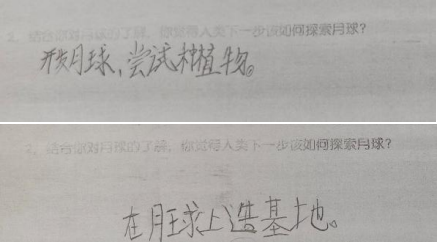 2. 结合你对月球的了解，你觉得人类下一步该如何探索月球？
月球，尝试种植物。
2. 结合你对月球的了解，你觉得人类下一步该如何探索月球？
在月球上造基地。